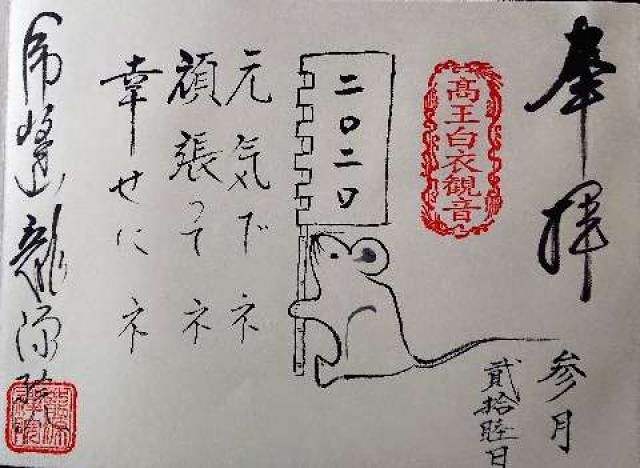 奉拝
参月
貳拾陸日
高王白衣観音
二〇二〇
元気でネ
頑張ってネ
幸せにネ
龍源